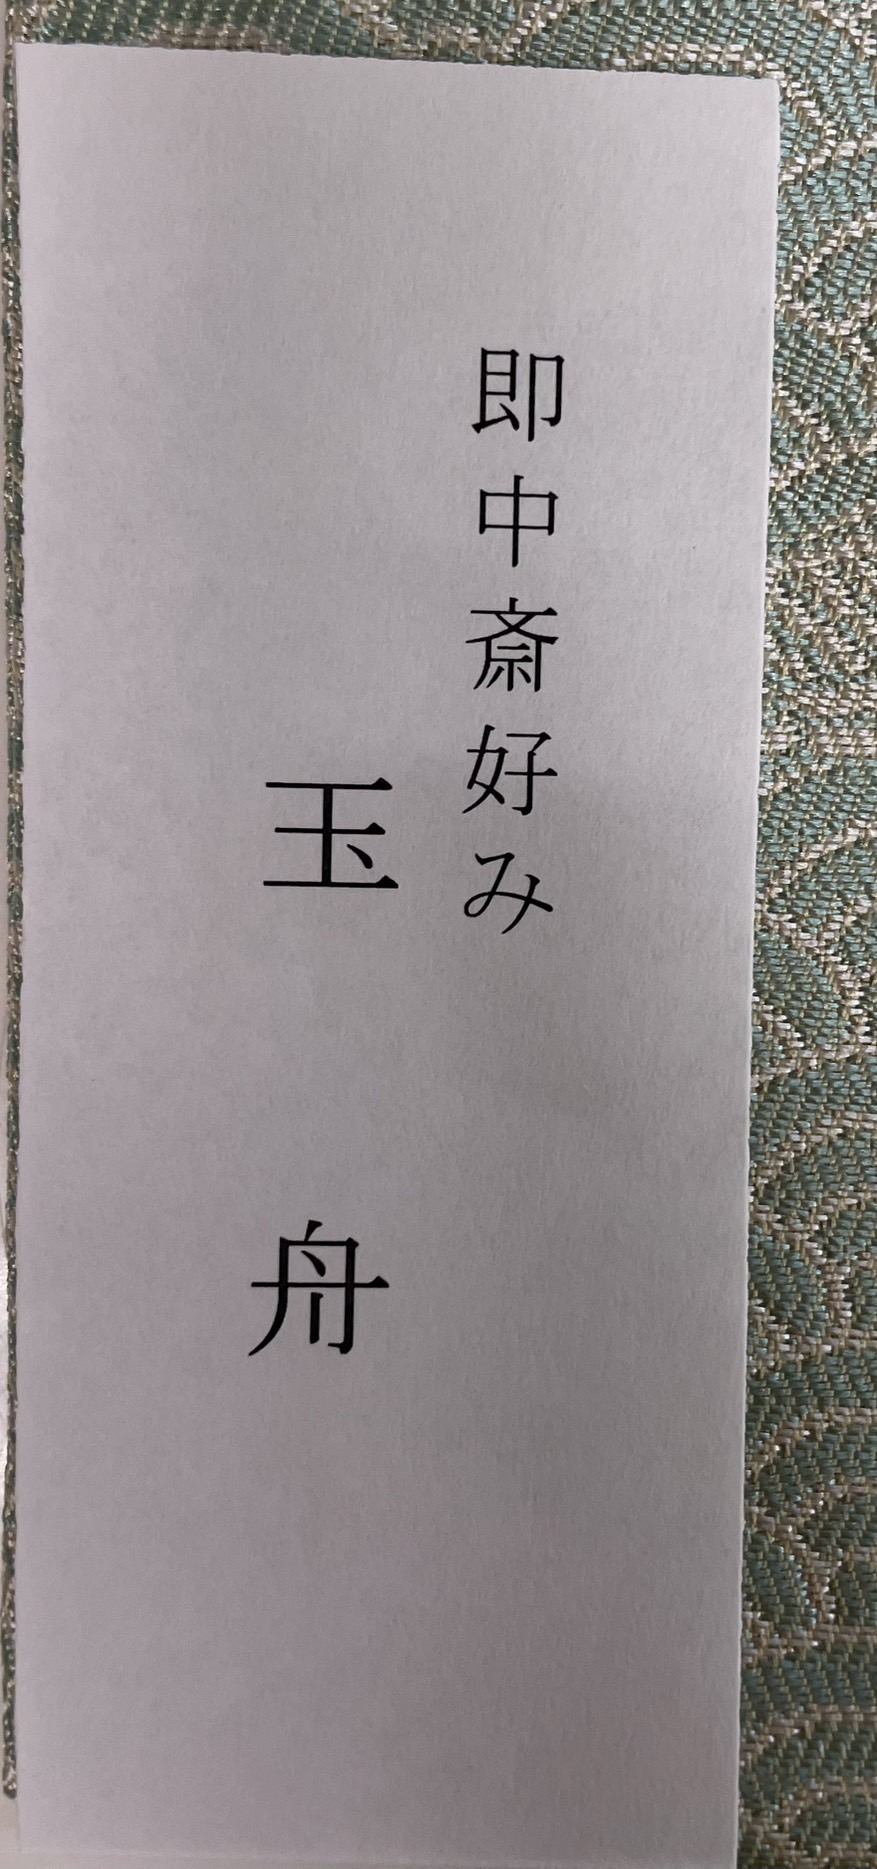 即中斎好み
玉舟